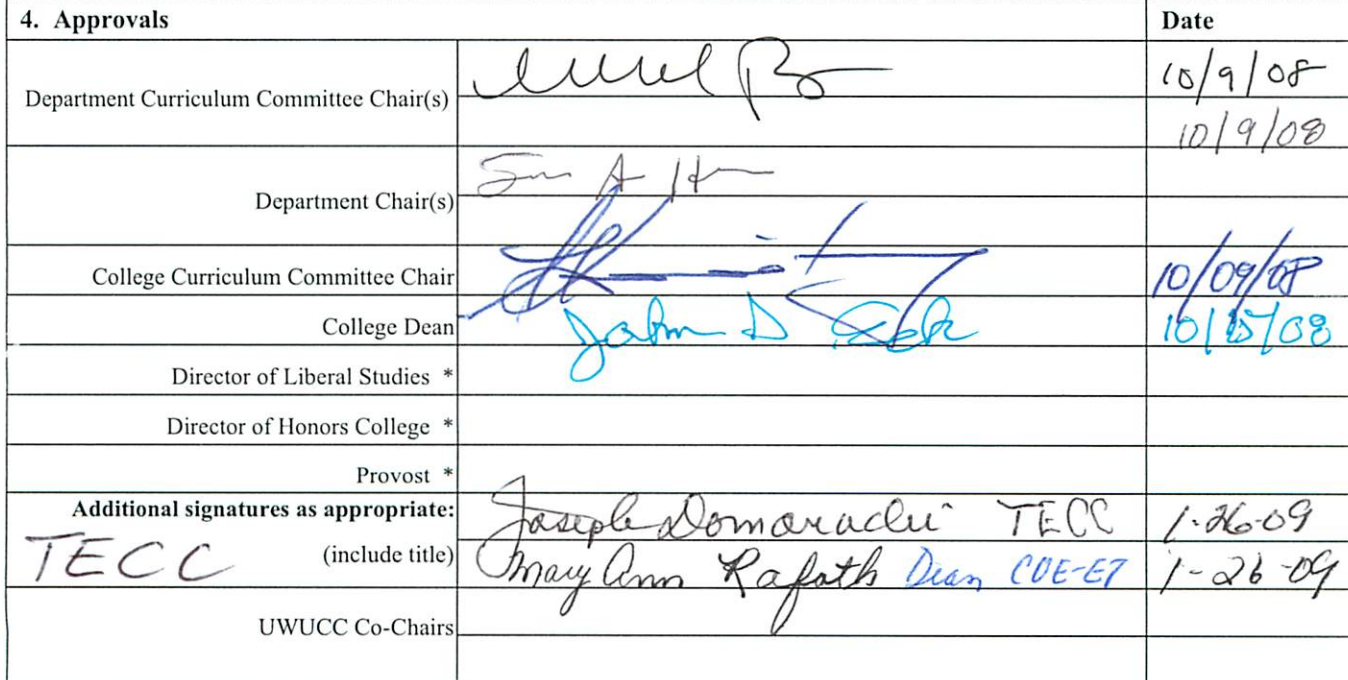 4. Approvals Date
Department Curriculum Committee Chair(s) 10/9/08
10/9/08
Department Chair(s)
College Curriculum Committee Chair 10/09/08
College Dean John D 10/ /08
Director of Liberal Studies *
Director of Honors College *
Provost *
Additional signatures as appropriate: Joseph TECC 1-26-09
TECC (include title) Mary Ann Rafoth Dean COE-ET 1-26-09
UWUCC Co-Chairs